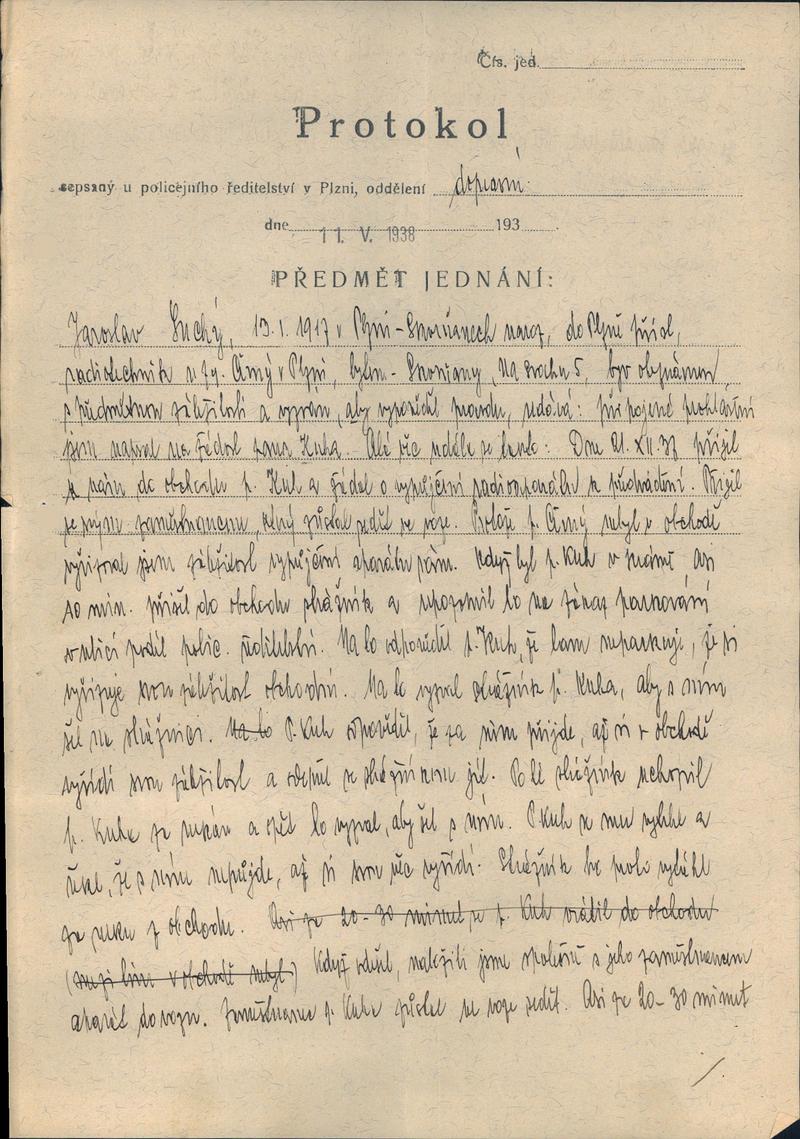 Čís. jed.
Protokol
sepsaný u policejního ředitelství v Plzni, oddělení dopravní
dne 11. V. 1938 193
PŘEDMĚT JEDNÁNÍ:
Jaroslav Suchý, 13.1.1917 v Plzni-Skvrňanech naroz, do Plzně přísl,
radiotechnik u fy. Černý v Plzni, bytem - Skvrňany, Na svahu 5, byv obeznámen
s předmětnou záležitostí a vyzván, aby vypověděl pravdu, udává: připojené prohlášení
jsem napsal na žádost pana Kuha. Celá věc udála se takto: Dne 21. XII. 37 přišel
k nám do obchodu p. Kuh a žádal o vypůjčení radioaparátu k předvádění. Přijel
se svým zaměstnancem, který zůstal seděti ve voze. Protože p. Černý nebyl v obchodě
vyřizoval jsem záležitost vypůjčení aparátu sám. Když byl p. Kuh v krámě asi
10 min. přišel do obchodu strážník a upozornil ho na zákaz parkování
v ulici podél polic. ředitelství. Na to odpověděl p. Kuh, že tam neparkuje, že si
vyřizuje svou záležitost obchodní. Na to vyzval strážník p. Kuha, aby s ním
šel na strážnici. Na to P. Kuh odpověděl, že za ním přijde, až si v obchodě
vyřídí svou záležitost a odepřel se strážníkem jít. Poté strážník uchopil
p. Kuha za rukáv a opět ho vyzval, aby šel s ním. P. Kuh se mu vytrhl a
řekl, že s ním nepůjde, až si svou věc vyřídí. Strážník ho proto vytáhl
za ruku z obchodu. Asi za 20-30 minut se p. Kuh vrátil do obchodu
(mezi tím v obchodě nebyl) Když odešel, naložili jsme společně s jeho zaměstnancem
aparát do vozu. Zaměstnanec p. Kuha zůstal ve voze sedět. Asi za 20-30 minut